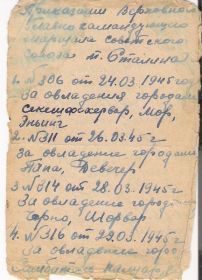 Приказами Верховного
Главнокомандующего
маршала советского
союза т. Сталина
1. N 306 от 24.03.1945 год
За овладения городами
Секешфехервар, Мор,
Эньинг
2. N 311 от 26.03.45 г
За овладение городами
Папа, Девечер
3 N 314 от 28.03.1945 г
За овладение городами
Чорно, Шарвар
4. N 316 от 29.03.1945 г
За овладение городами
Капувар